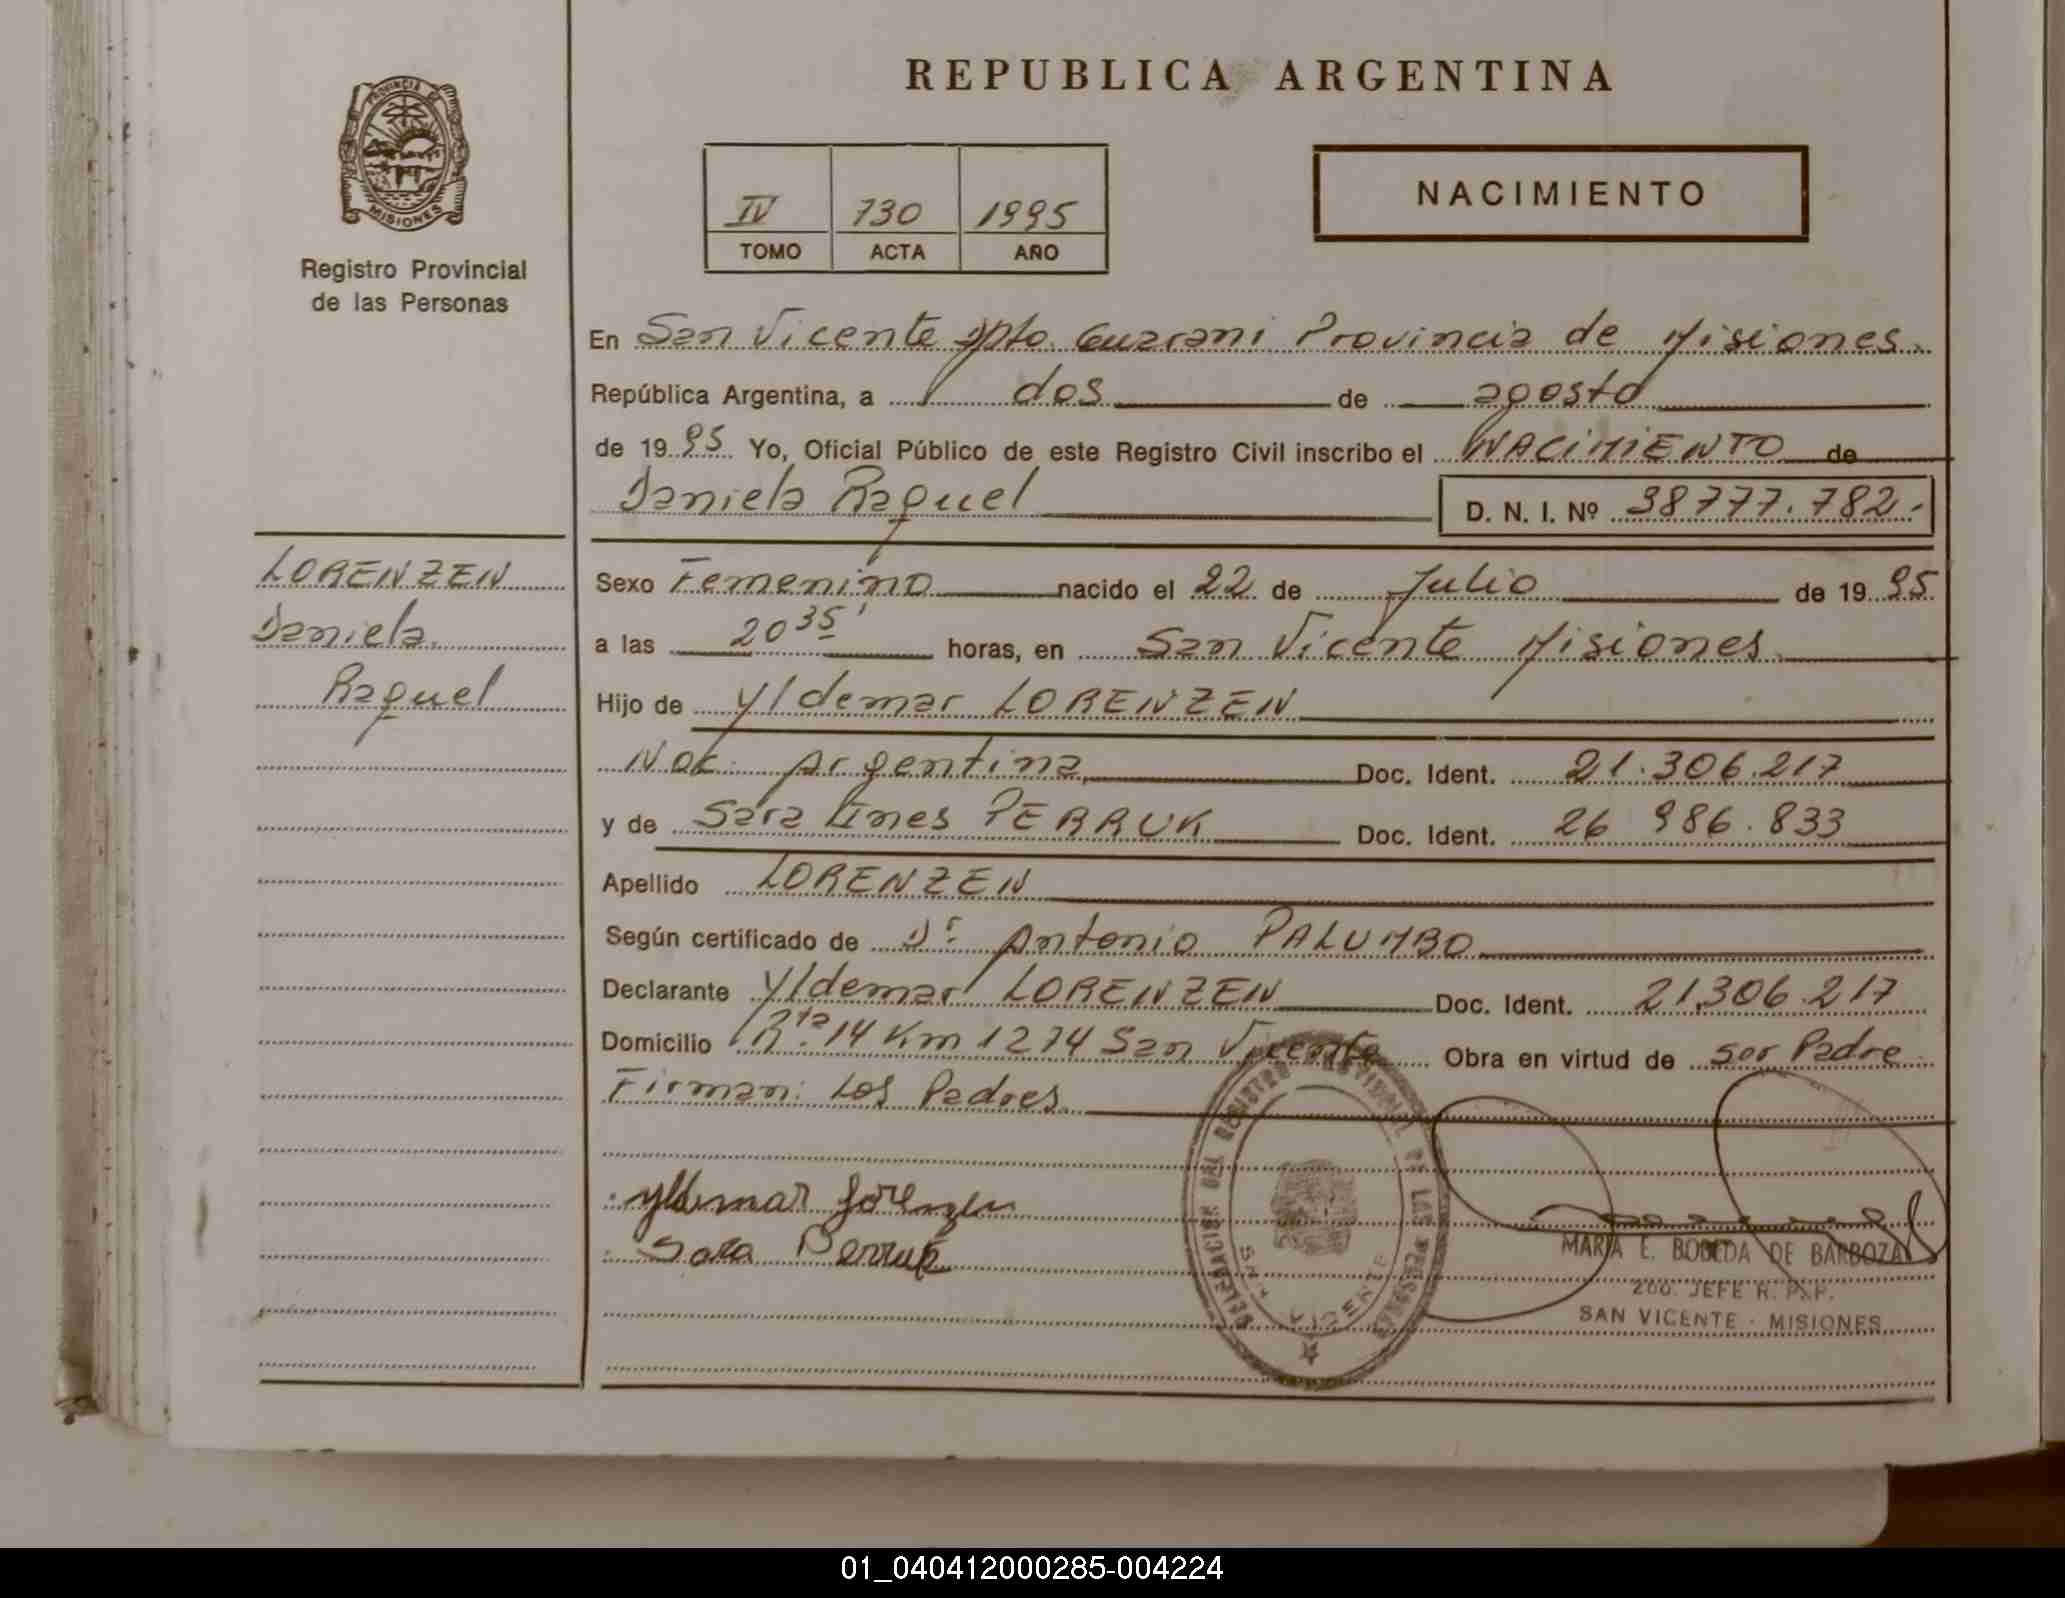 REPUBLICA ARGENTINA
PROVINCIA DE
MISIONES
Registro Provincial
de las Personas
IV 730 1995
TOMO ACTA AÑO
NACIMIENTO
En San Vicente Dpto. Guarani Provincia de Misiones.
República Argentina, a dos de agosto
de 1995 Yo, Oficial Público de este Registro Civil inscribo el NACIMIENTO de
Daniela Raquel D. N. I. Nº 38777.782.-
LORENZEN
Daniela
Raquel
Sexo Femenino nacido el 22 de Julio de 1995
a las 20 35' horas, en San Vicente Misiones
Hijo de Yldemar LORENZEN
Nac. Argentina Doc. Ident. 21.306.217
y de Sara Ines PERRUK Doc. Ident. 26 986.833
Apellido LORENZEN
Según certificado de Dr. Antonio PALUMBO
Declarante Yldemar LORENZEN Doc. Ident. 21.306.217
Domicilio Rta. 14 Km 1274 San Vicente Obra en virtud de ser Padre
Firman: Los Padres
Yldemar Lorenzen
Sara Perruk
DELEGACION DEL REGISTRO PROVINCIAL DE LAS PERSONAS
SAN VICENTE
MARIA E. BOBEDA DE BARBOZA
2do. JEFE R. P. P.
SAN VICENTE - MISIONES
01_040412000285-004224